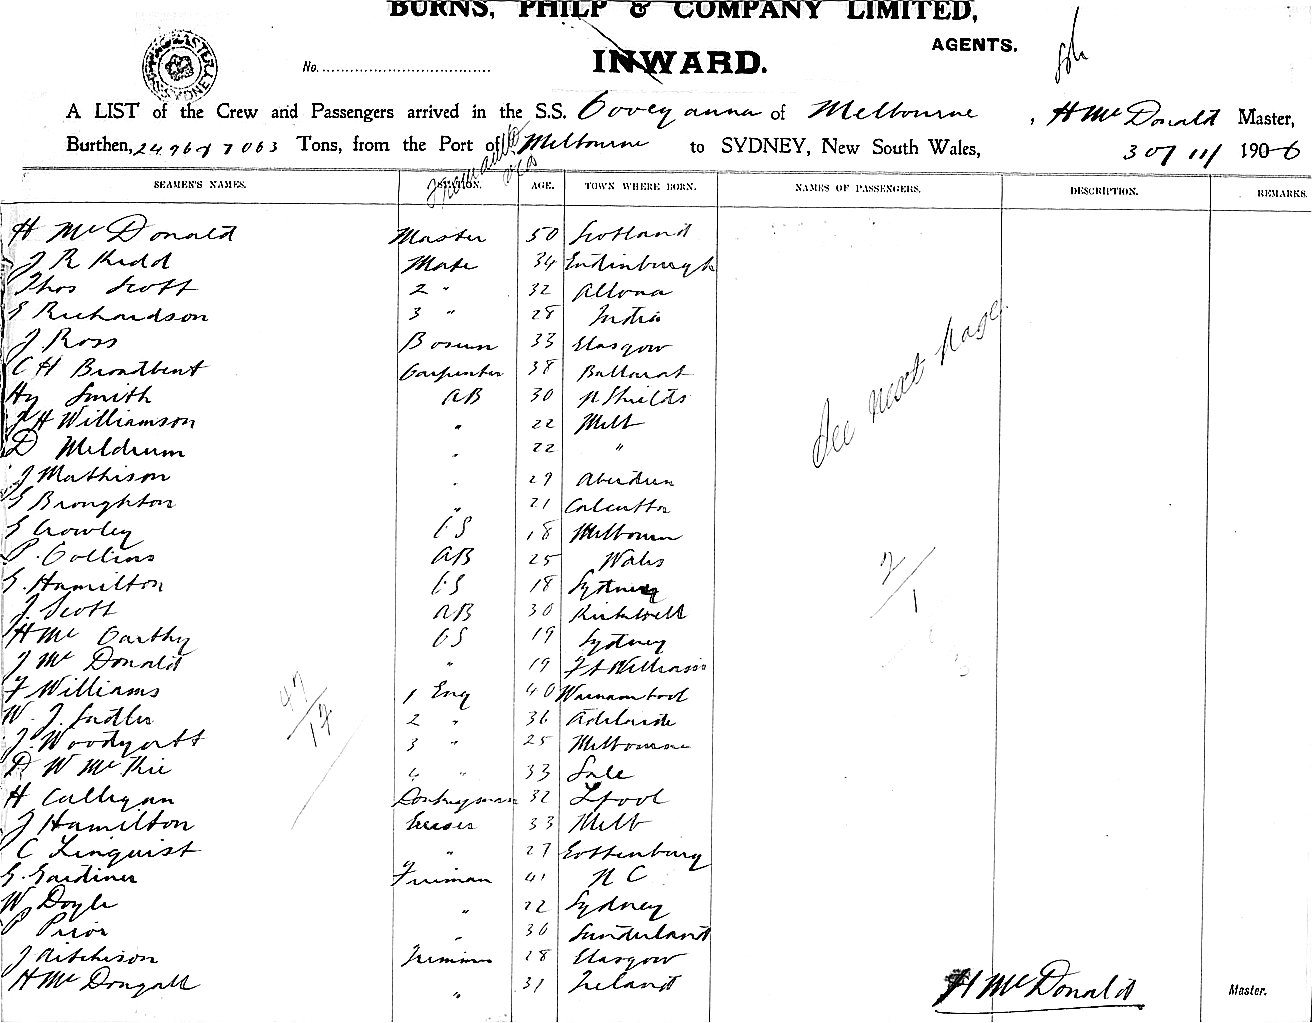 BURNS, PHILP & COMPANY LIMITED,
AGENTS.
INWARD.
No.
A LIST of the Crew and Passengers arrived in the S.S. Cooeyanna of Melbourne, H McDonald Master,
Burthen, Tons, from the Port of Melbourne to SYDNEY, New South Wales, 30/11/ 1906
Fremantle
SEAMEN'S NAMES. STATION. AGE. TOWN WHERE BORN. NAMES OF PASSENGERS. DESCRIPTION. REMARKS.
H McDonald Master 50 Scotland
J R Kidd Mate 34 Endinburgh
Thos Scott 2 " 32 Allona
E Richardson 3 " 28 India
J Ross Bosun 33 Glasgow
C H Broadbent Carpenter 38 Ballarat
Hy Smith AB 30 N Shields
J H Williamson " 22 Melb
D Meldrum " 22 "
J Mathison " 29 Aberdeen
E Broughton " 21 Calcutta
E Crowley OS 18 Melbourn
P. Collins AB 25 Wales
G. Hamilton OS 18 Sydney
J. Scott AB 30 Kirkwell
H McCarthy OS 19 Sydney
J McDonald " 19 Ft William
F Williams 1 Eng 40 Warnambool
W. J. Sadler 2 " 36 Adelaide
J. Woodyatt 3 " 25 Melbourne
D W McKie 4 " 33 Sale
H Calligan Donkeyman 32 Lpool
J Hamilton Greaser 33 Melb
C Linquist " 27 Gottenburg
G. Gardiner Fireman 41 N C
W Doyle " 22 Sydney
P Prior " 36 Sunderland
J Aitchison Trimmer 28 Glasgow
H McDougall " 31 Ireland
See next page
2/1
47/12
H McDonald Master.